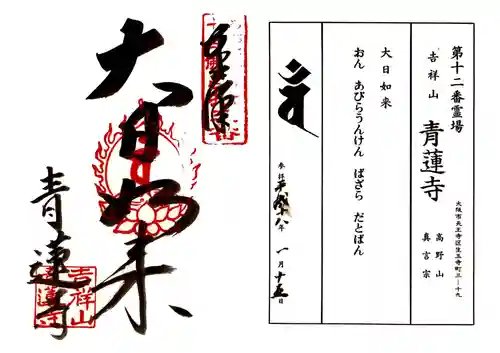 奉拝
大日如来
青蓮寺
吉祥山
青蓮寺
第十二番霊場
吉祥山
青蓮寺
高野山
真言宗
大阪市天王寺区生玉寺町三ー十九
大日如来
おん あびらうんけん ばざら だとばん
参拝平成十八年一月十五日